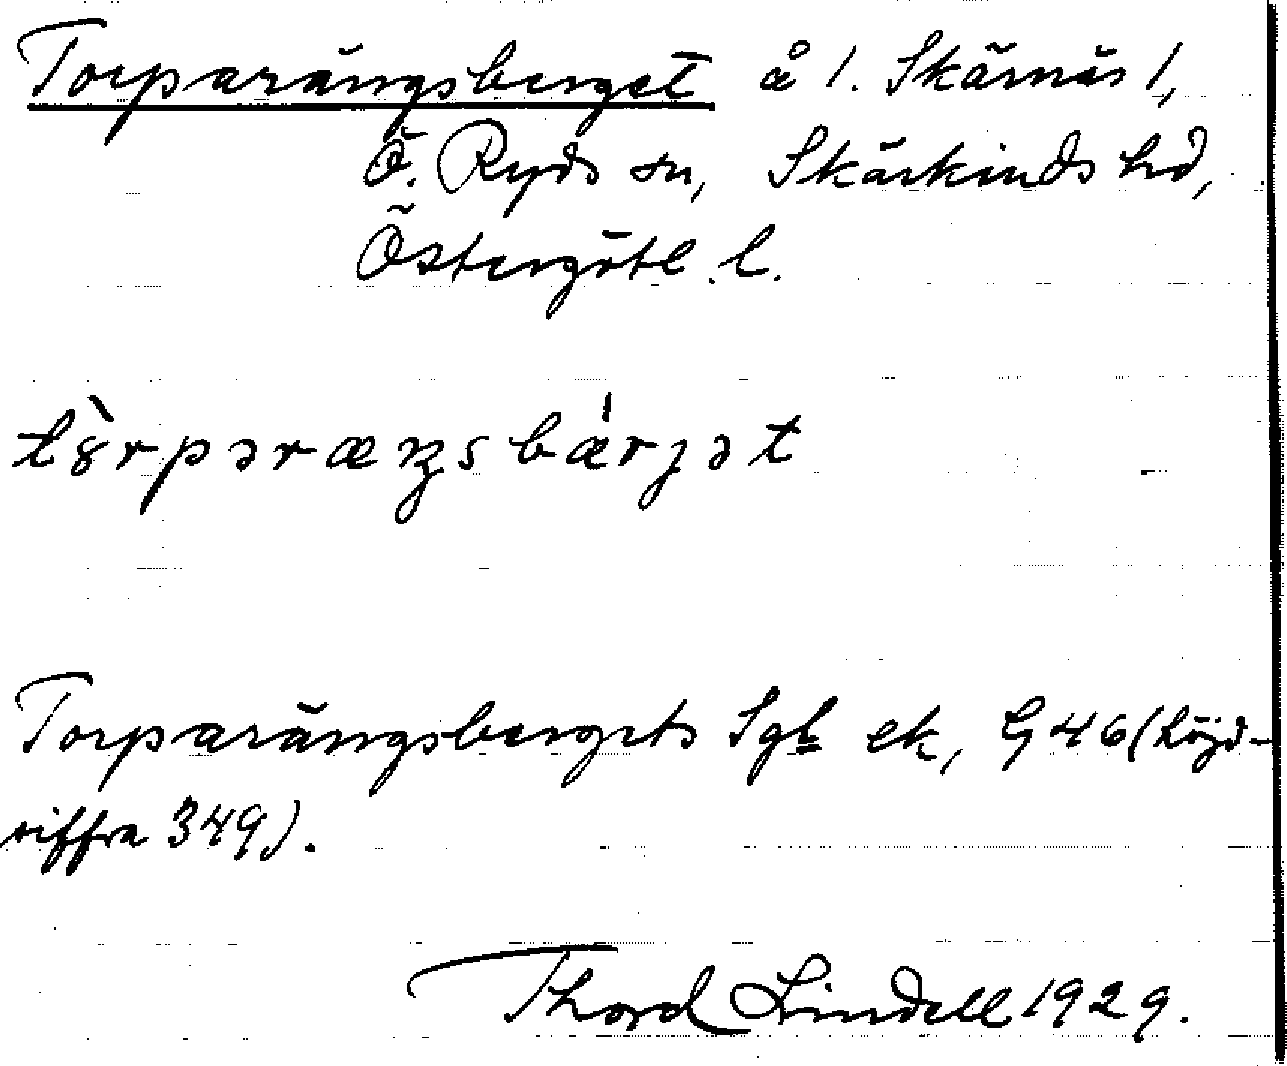 Torparängsberget å 1. Skärnäs 1,
Ö. Ryds sn, Skärkinds hd,
Östergötl. l.
tȣ̀rpəræŋsbæ̀rjət
Torparängsbergets Sgb ek, G 46 (höjd-
siffra 349).
Thord Lindell 1929.